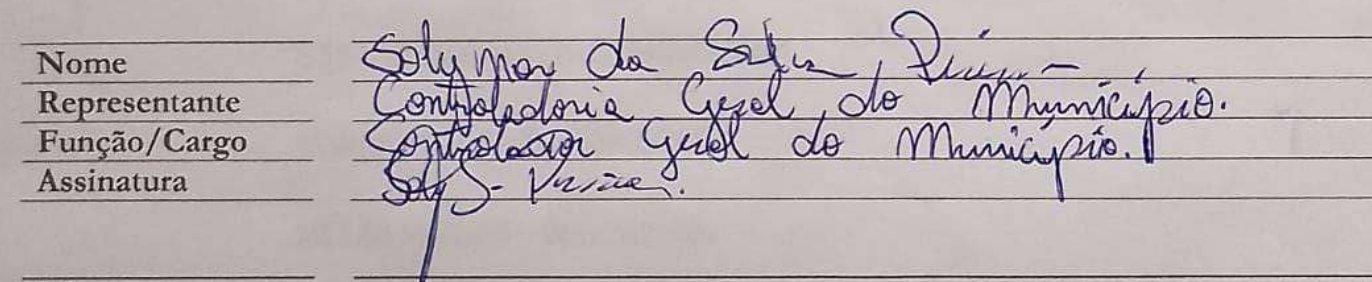 Nome Solymar da Silva
Representante Controladoria Geral do Município.
Função/Cargo Controlador Geral do Município.
Assinatura